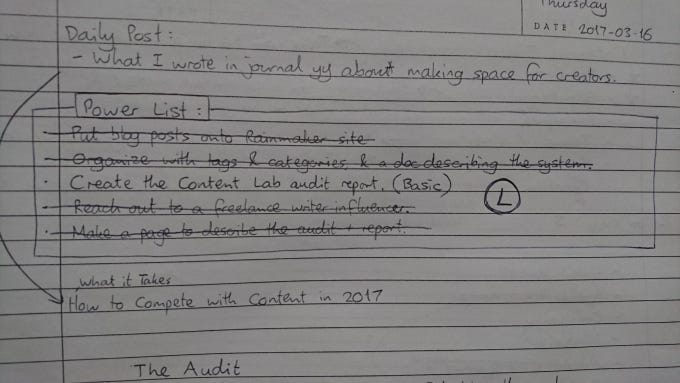 Thursday
DATE 2017-03-16
Daily Post:
- What I wrote in journal yy about making space for creators.
Power List:
- Put blog posts onto Rainmaker site
- Organize with tags & categories, & a doc describing the system.
· Create the Content Lab audit report. (Basic)
L
· Reach out to a freelance writer influencer.
· Make a page to describe the audit + report.
what it Takes
How to Compete with Content in 2017
The Audit